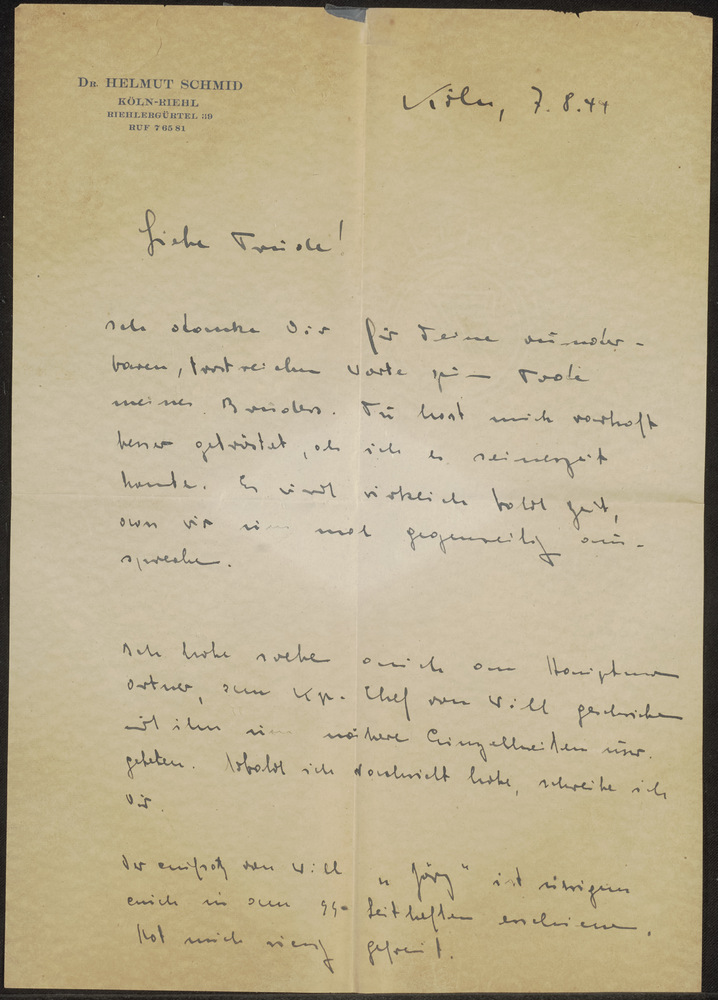 Dr. HELMUT SCHMID
KÖLN-RIEHL
RIEHLERGÜRTEL 39
RUF 7 65 81
Köln, 7.8.44
Liebe Traude!
Ich danke Dir für Deine wunder-
baren, trostreichen Worte zum Tode
meines Bruders. Du hast mich wahrhaft
besser getröstet, als ich es seinerzeit
konnte. Es wird wirklich bald Zeit,
dass wir uns mal gegenseitig aus-
sprechen.
Ich habe soeben auch an Hauptmann
Ortner, dem Kp.-Chef von Will geschrieben
und ihn um nähere Einzelheiten usw.
gebeten. Sobald ich Nachricht habe, schreibe ich
Dir.
Der Aufsatz von Will "Jörg" ist übrigens
auch in den SS-Leitheften erschienen.
Hat mich riesig gefreut.